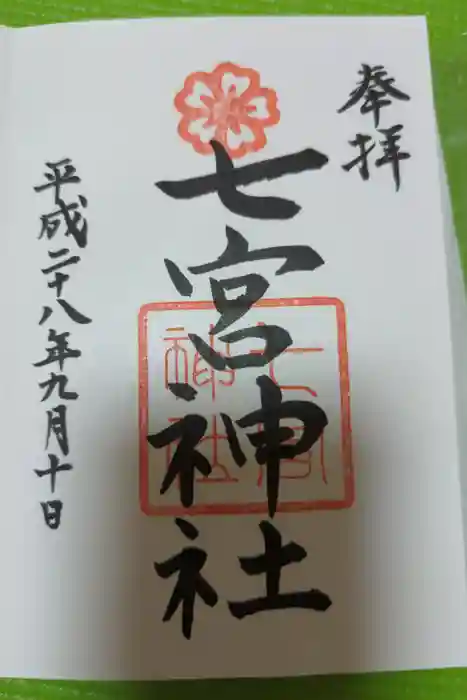 奉拝
七宮神社
七宮
神社
平成二十八年九月十日